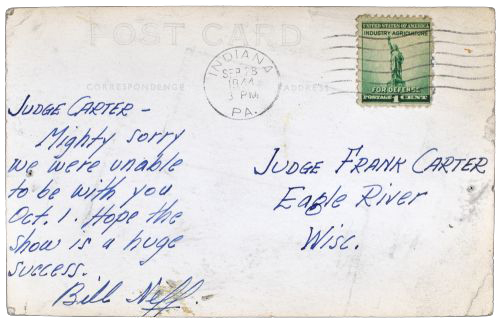 POST CARD
CORRESPONDENCE
ADDRESS
INDIANA
SEP
3 PM
PA.
UNITED STATES OF AMERICA
INDUSTRY AGRICULTURE
FOR DEFENSE
POSTAGE 1 CENT
JUDGE CARTER –
Mighty sorry
we were unable
to be with you
Oct. 1. Hope the
show is a huge
success.
Bill Neff.
JUDGE FRANK CARTER
Eagle River
Wisc.